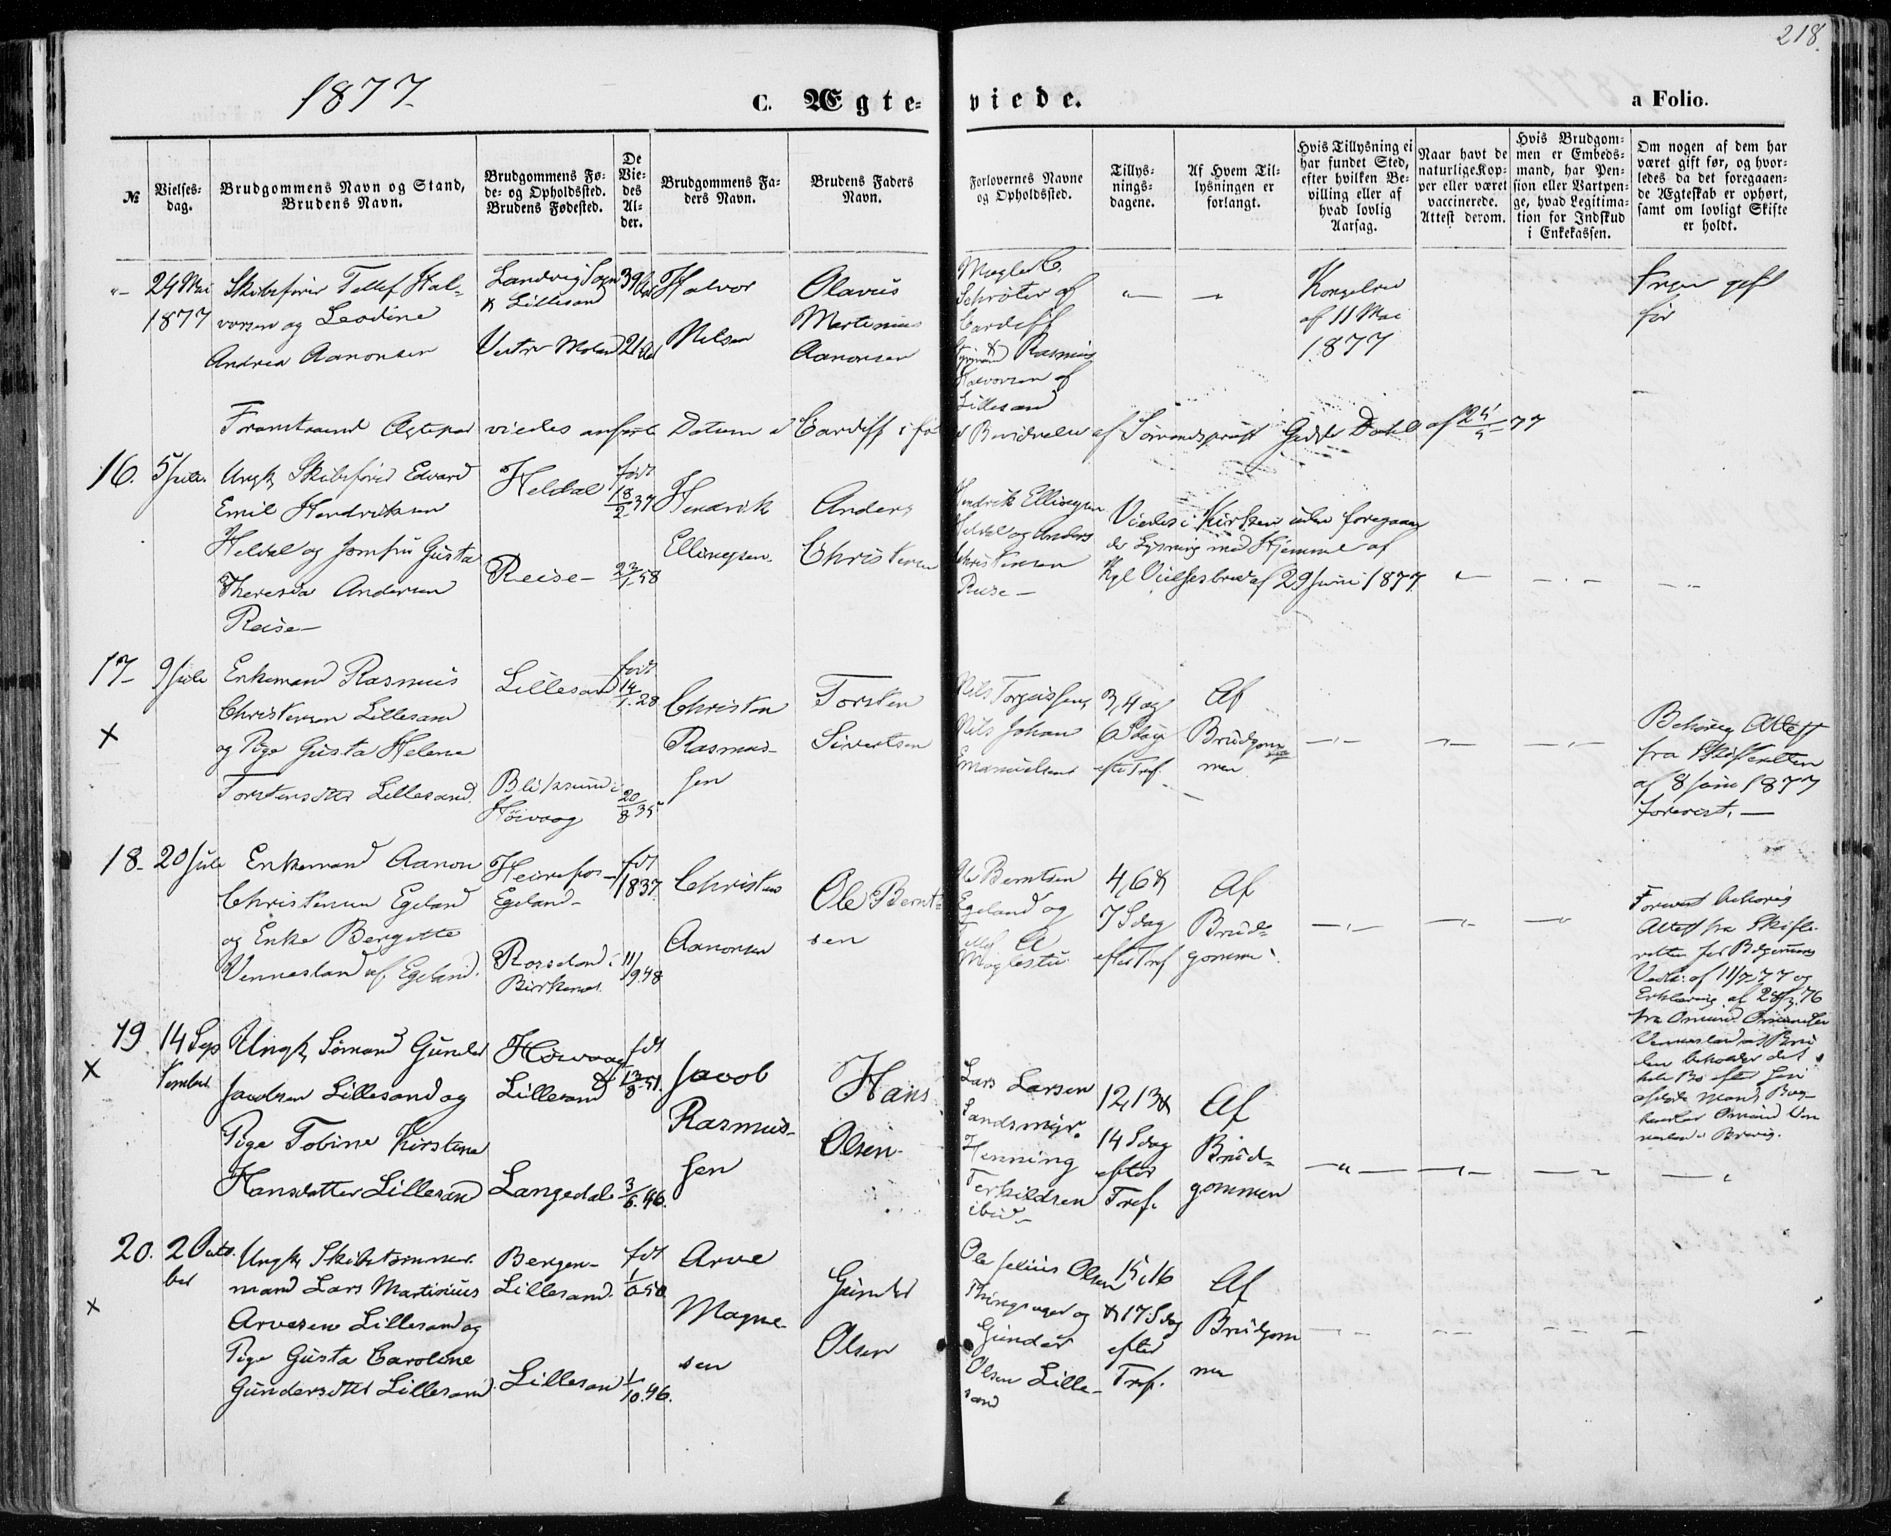 218.
1877.
C. Ægte- viede.
a Folio.
№
Vielses-
dag.
Brudgommens Navn og Stand,
Brudens Navn.
Brudgommens Fø-
de- og Opholdssted.
Brudens Fødested.
De
Vie-
des
Al-
der.
Brudgommens Fa-
ders Navn.
Brudens Faders
Navn.
Forlovernes Navne
og Opholdssted.
Tillys-
nings-
dagene.
Af Hvem Til-
lysningen er
forlangt.
Hvis Tillysning ei
har fundet Sted,
efter hvilken Be-
villing eller af
hvad lovlig
Aarsag.
Naar havt de
naturlige Kop-
per eller været
vaccinerede.
Attest derom.
Hvis Brudgom-
men er Embeds-
mand, har Pen-
sion eller Vartpen-
ge, hvad Legitima-
tion for Indskud
i Enkekassen.
Om nogen af dem har
været gift før, og hvor-
ledes da det foregaaen-
de Ægteskab er ophørt,
samt om lovligt Skifte
er holdt.
24 Mai
1877
Skibsfører Tellef Hal-
vorsen og Leodine
Andrea Aanonsen
Landvig Sogn
& Lillesand
Vestre Moland
39
21
Halvor
Nilsen
Olavus
Martinius
Aanonsen
Mægler C.
Schrøter af
Cardiff
& Rasmus
Halvorsen af
Lillesand
Kongebrev
af 11 Mai
1877
Ingen gift
før
Foranstaaende Ægtepar viedes anførte Datum i Cardiff i følge Bevidnelse af Sømandsprest Dahl af 25/5 77
16.
5 Juli
Ungk. Skibsfører Edvard
Emil Hendriksen
Heldal og Jomfru Gusta
Theresia Andersen
Reise-
Heldal
Reise-
født
18/2 37
23/1 58
Hendrik
Ellingsen
Anders
Christensen
Hendrik Ellingsen
Heldal og Anders
Christensen
Reise-
Viedes i Kirken uden foregaaen
de Lysning med Hjemmel af
Kgl Vielsesbrev af 29 Juni 1877
17-
9 Juli
×
Enkemand Rasmus
Christensen Lillesand
og Pige Gusta Helene
Torstensdtter Lillesand
Lillesand
Bliksund i
Høivaag
født
14/1 28
20/8 35
Christen
Rasmus-
sen
Torsten
Sivertsen
Nils Torgussen,
Nils Johan
Emanuelsen
3, 4 og
6 Sdag
efter Tref.
Af
Brudgom
men
Behørig Attest
fra Skifteretten
af 8 Juni 1877
forevist. —
18-
20 Juli
Enkemand Aanon
Christensen Egeland
og Enke Bergitte
Vennesland af Egeland.
Heirefos-
Egeland-
Rosseland i
Birkenes.
født
1837.
11/9 48
Christen
Aanonsen
Ole Bernt-
sen
Ole Berntsen
Egeland og
Tellef
Møglestu
4, 6 &
7 Sdag
efter Tref
Af
Brud-
gommen.
Forevist behørig
Attest fra Skifte-
retten
af 11/7 77 og
Erklæring af
fra Omund
Vennesland at Bru
den beholder det
hele Bo efter sin
afdøde Mand
19
14 Sep
tember
×
Ungk. Sømand Gunder
Jacobsen Lillesand og
Pige Tobine Kirstine
Hansdatter Lillesand
Høivaag
& Lillesand
Langedal
født
13/8 51.
3/8 46.
Jacob
Rasmus-
sen
Hans
Olsen-
Lars Larsen
Landsmyr.
Henning
Terkildsen
ibid-
12, 13 &
14 Sdag
efter
Tref.
Af
Brud-
gommen
20.
2 Octo
ber
×
Ungk. Skibstømmer
mand Lars Martinius
Arvesen Lillesand og
Pige Gusta Caroline
Gundersdtter Lillesand.
Bergen-
Lillesand.
Lillesand
født
1/6 50
1/10 46.
Arve
Magne-
sen
Gunder
Olsen
Ole Julius Olsen
og
Gunder
Olsen Lille-
sand
15, 16
& 17 Sdag
efter
Tref.
Af
Brudgom
men